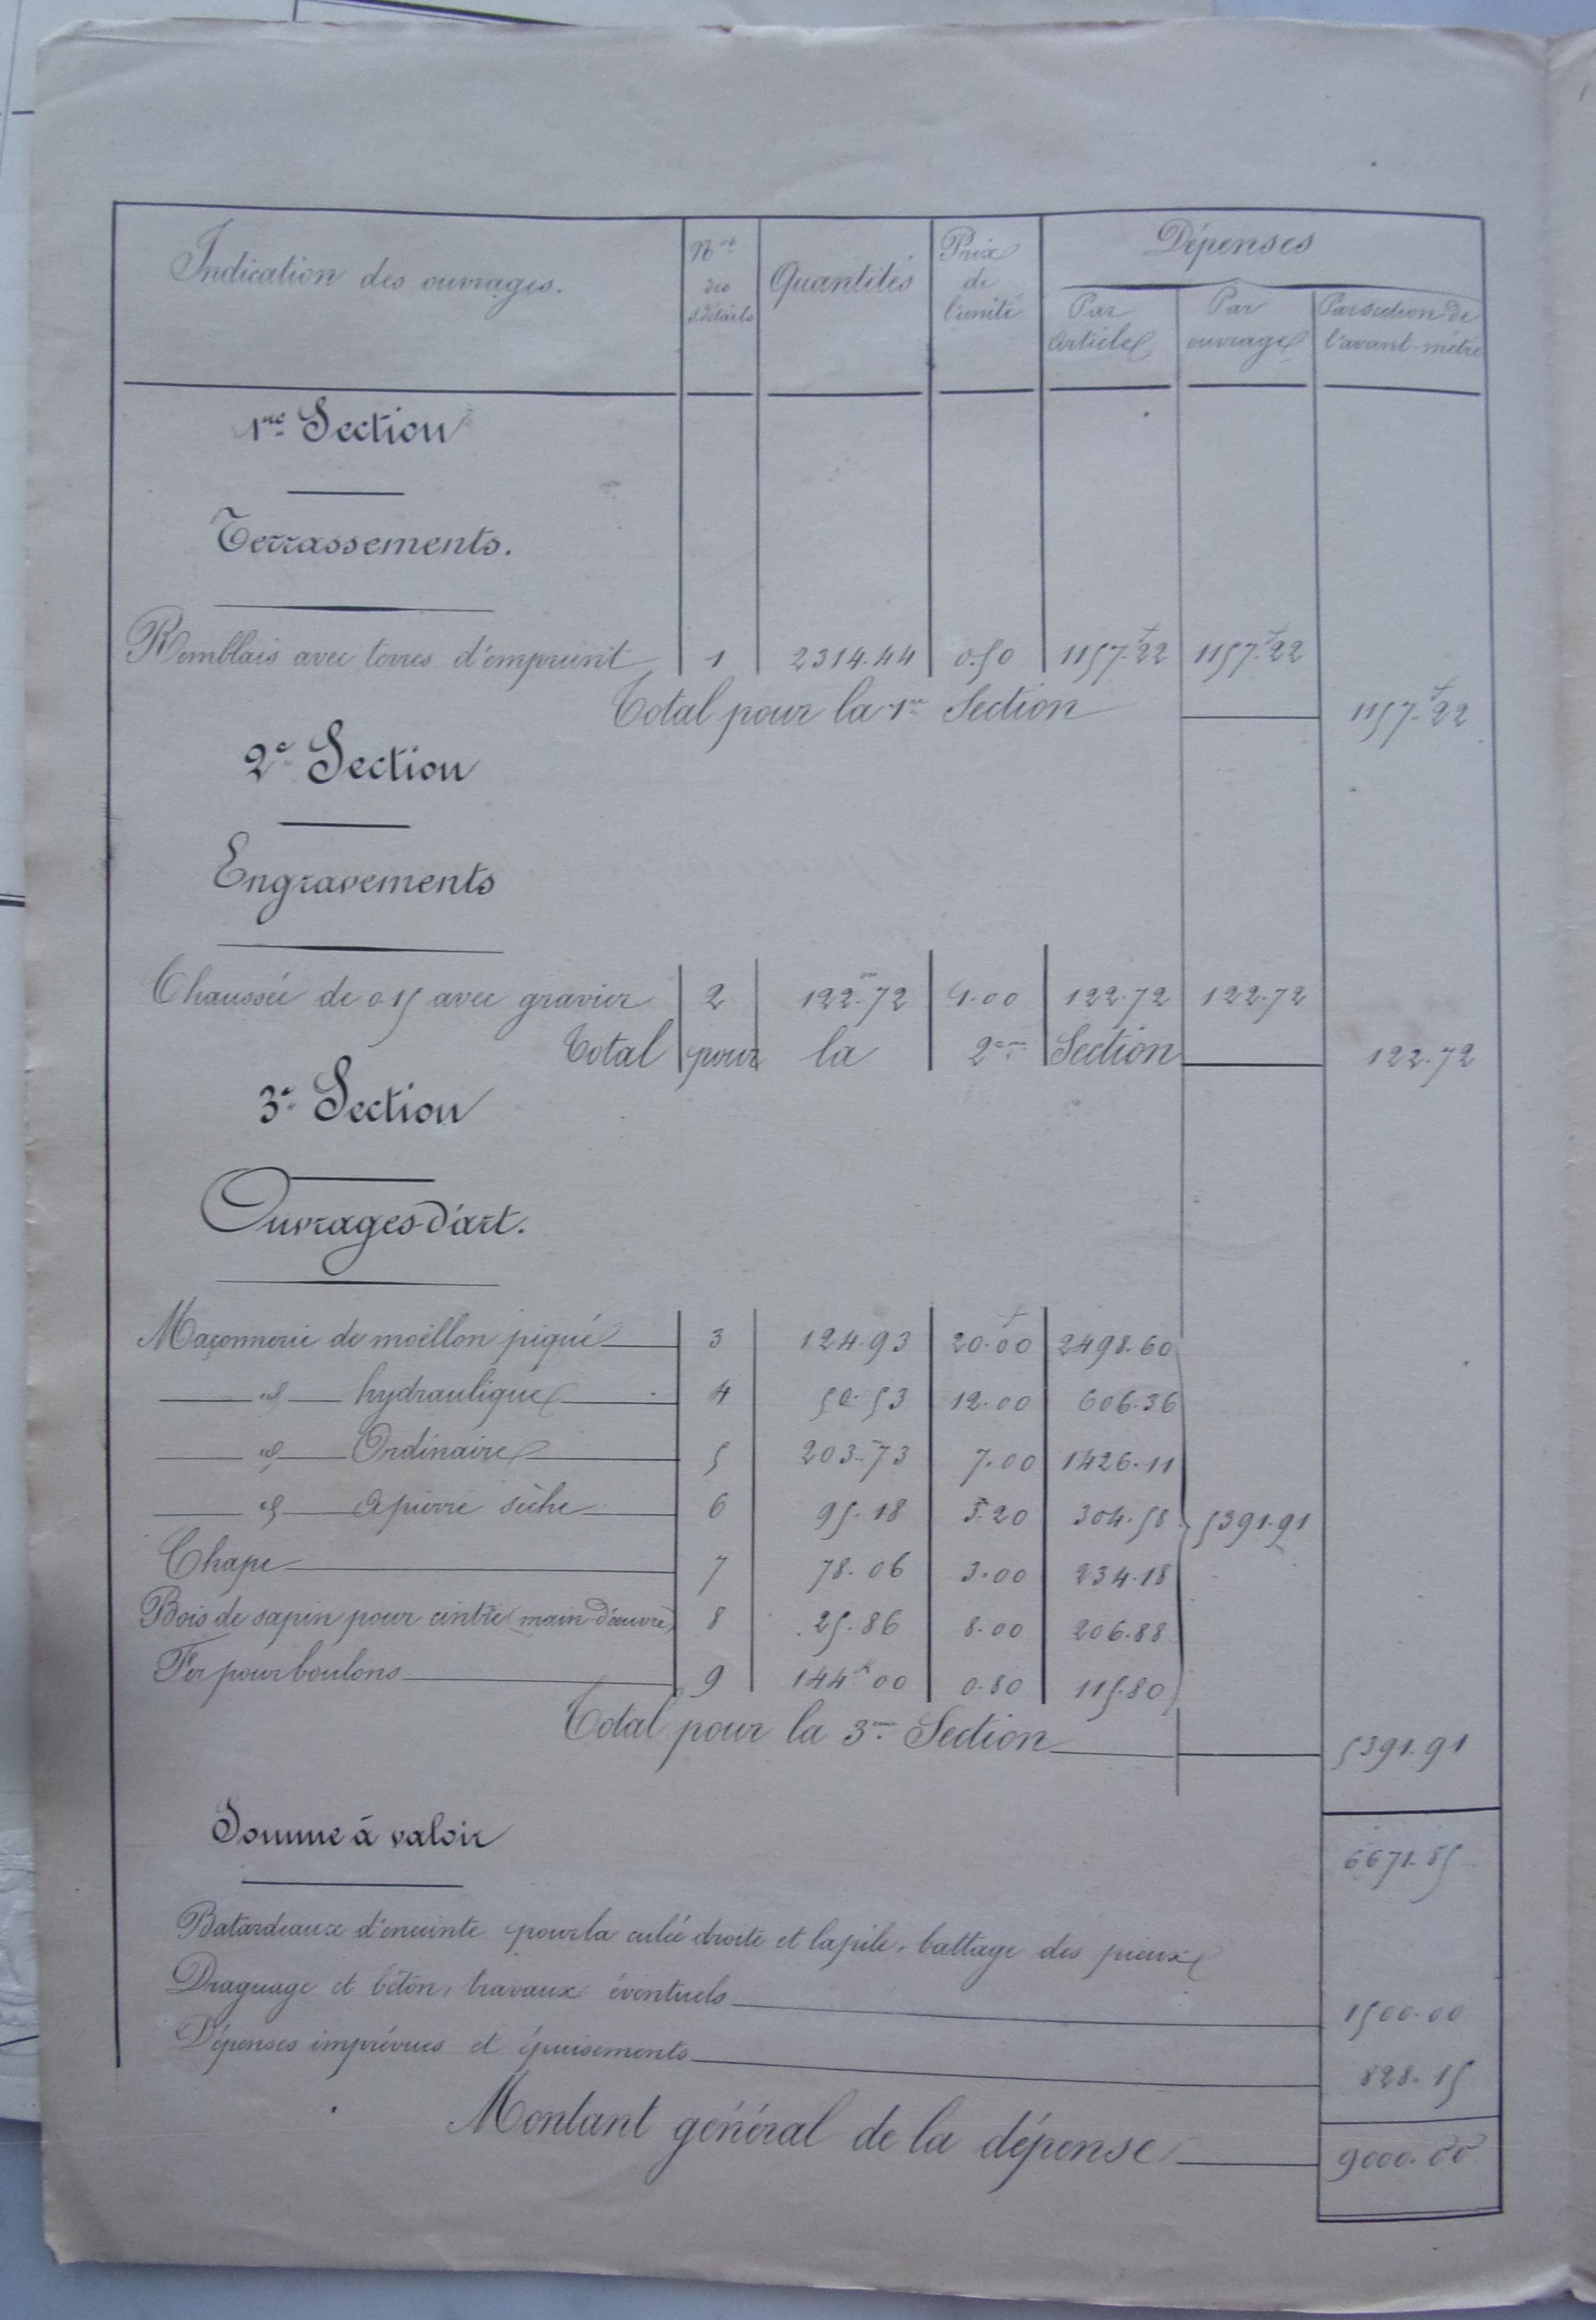 Indication des ouvrages.
Nos des détails
Quantités
Prix de l'unité
Dépenses
Par article
Par ouvrage
Par section de l'avant-métré
1re Section
Terrassements.
Remblais avec terres d'emprunt 1 2314.44 0.50 1157.22 1157.22
Total pour la 1re Section 1157.22
2e Section
Engravements
Chaussée de 0.15 avec gravier 2 122.72 1.00 122.72 122.72
Total pour la 2eme Section 122.72
3e Section
Ouvrages d'art.
Maçonnerie de moëllon piqué 3 124.93 20.00 2498.60
id hydraulique 4 50.53 12.00 606.36
id Ordinaire 5 203.73 7.00 1426.11
id à pierre sèche 6 95.18 3.20 304.58 5391.91
Chape 7 78.06 3.00 234.18
Bois de sapin pour cintre (main-d'œuvre) 8 25.86 8.00 206.88
Fer pour boulons 9 144k00 0.80 115.80
Total pour la 3me Section 5391.91
Somme à valoir 6671.85
Batardeaux d'enceinte pour la culée droite et la pile, battage des pieux
Draguage et béton, travaux éventuels 1500.00
Dépenses imprévues et épuisements 828.15
Montant général de la dépense 9000.00